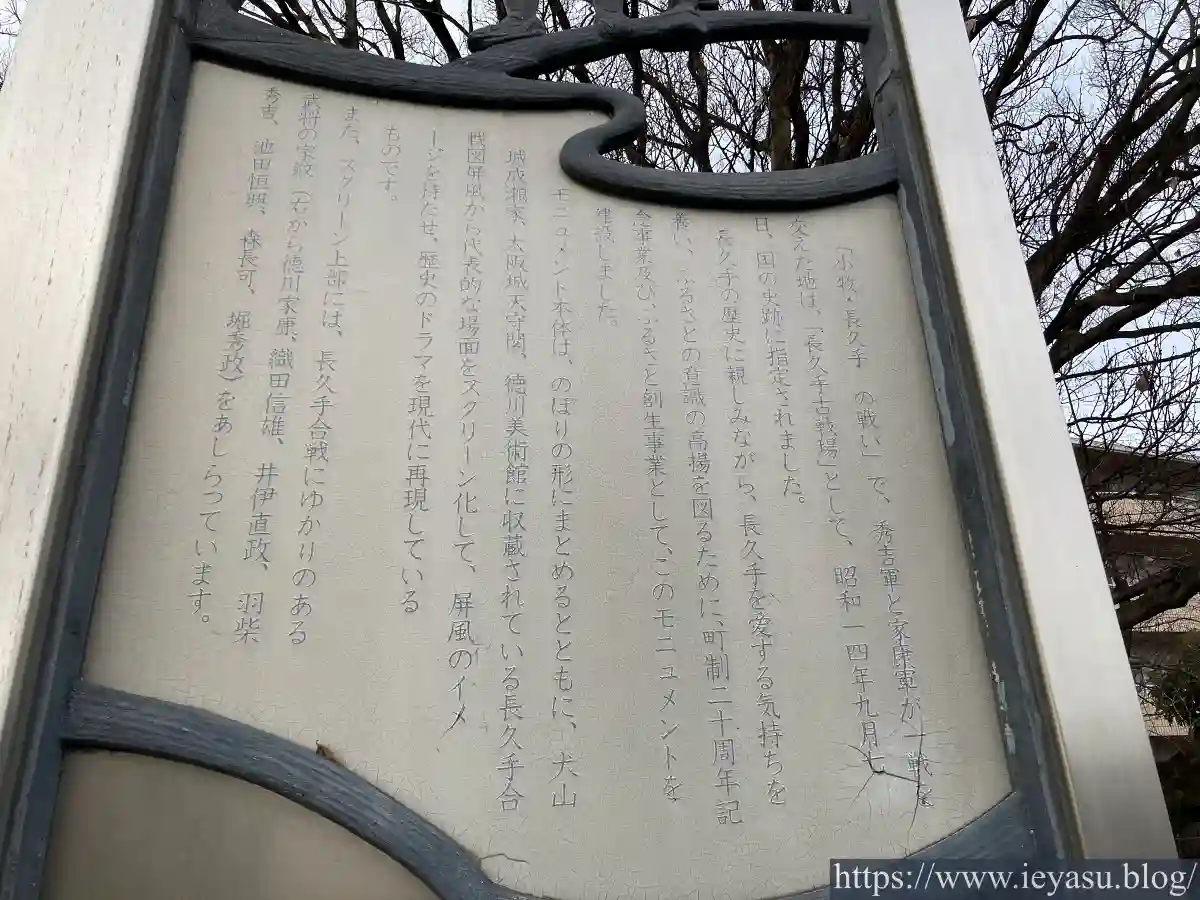 「小牧・長久手　の戦い」で、秀吉軍と家康軍が一戦を
交えた地は、「長久手古戦場」として、昭和一四年九月七
日、国の史跡に指定されました。
長久手の歴史に親しみながら、長久手を愛する気持ちを
養い、ふるさとの意識の高揚を図るために、町制二十周年記
念事業及び、ふるさと創生事業として、このモニュメントを
建設しました。
モニュメント本体は、のぼりの形にまとめるとともに、犬山
城成瀬家、大阪城天守閣、徳川美術館に収蔵されている長久手合
戦図屏風から代表的な場面をスクリーン化して、屏風のイメ
ージを持たせ、歴史のドラマを現代に再現している
ものです。
また、スクリーン上部には、長久手合戦にゆかりのある
武将の家紋（右から徳川家康、織田信雄、井伊直政、羽柴
秀吉、池田恒興、森長可、堀秀政）をあしらっています。
https://www.ieyasu.blog/